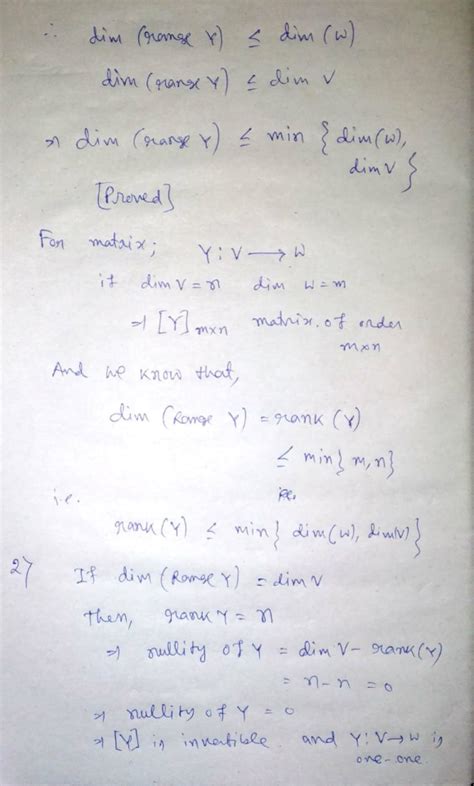 ∴ dim (range Y) ≤ dim (W)
dim (range Y) ≤ dim V
⇒ dim (range Y) ≤ min { dim(W),
dim V }
[Proved]
For matrix; Y : V ⟶ W
if dim V = n dim W = m
⇒ [Y] m×n matrix of order
m×n
And we know that,
dim (Range Y) = rank (Y)
≤ min{ m, n}
i.e.
rank (Y) ≤ min { dim(W), dim(V) }
2) If dim (Range Y) = dim V
then, rank Y = n
⇒ nullity of Y = dim V - rank(Y)
= n - n = 0
⇒ nullity of Y = 0
⇒ [Y] is invertible and Y : V → W is
one-one